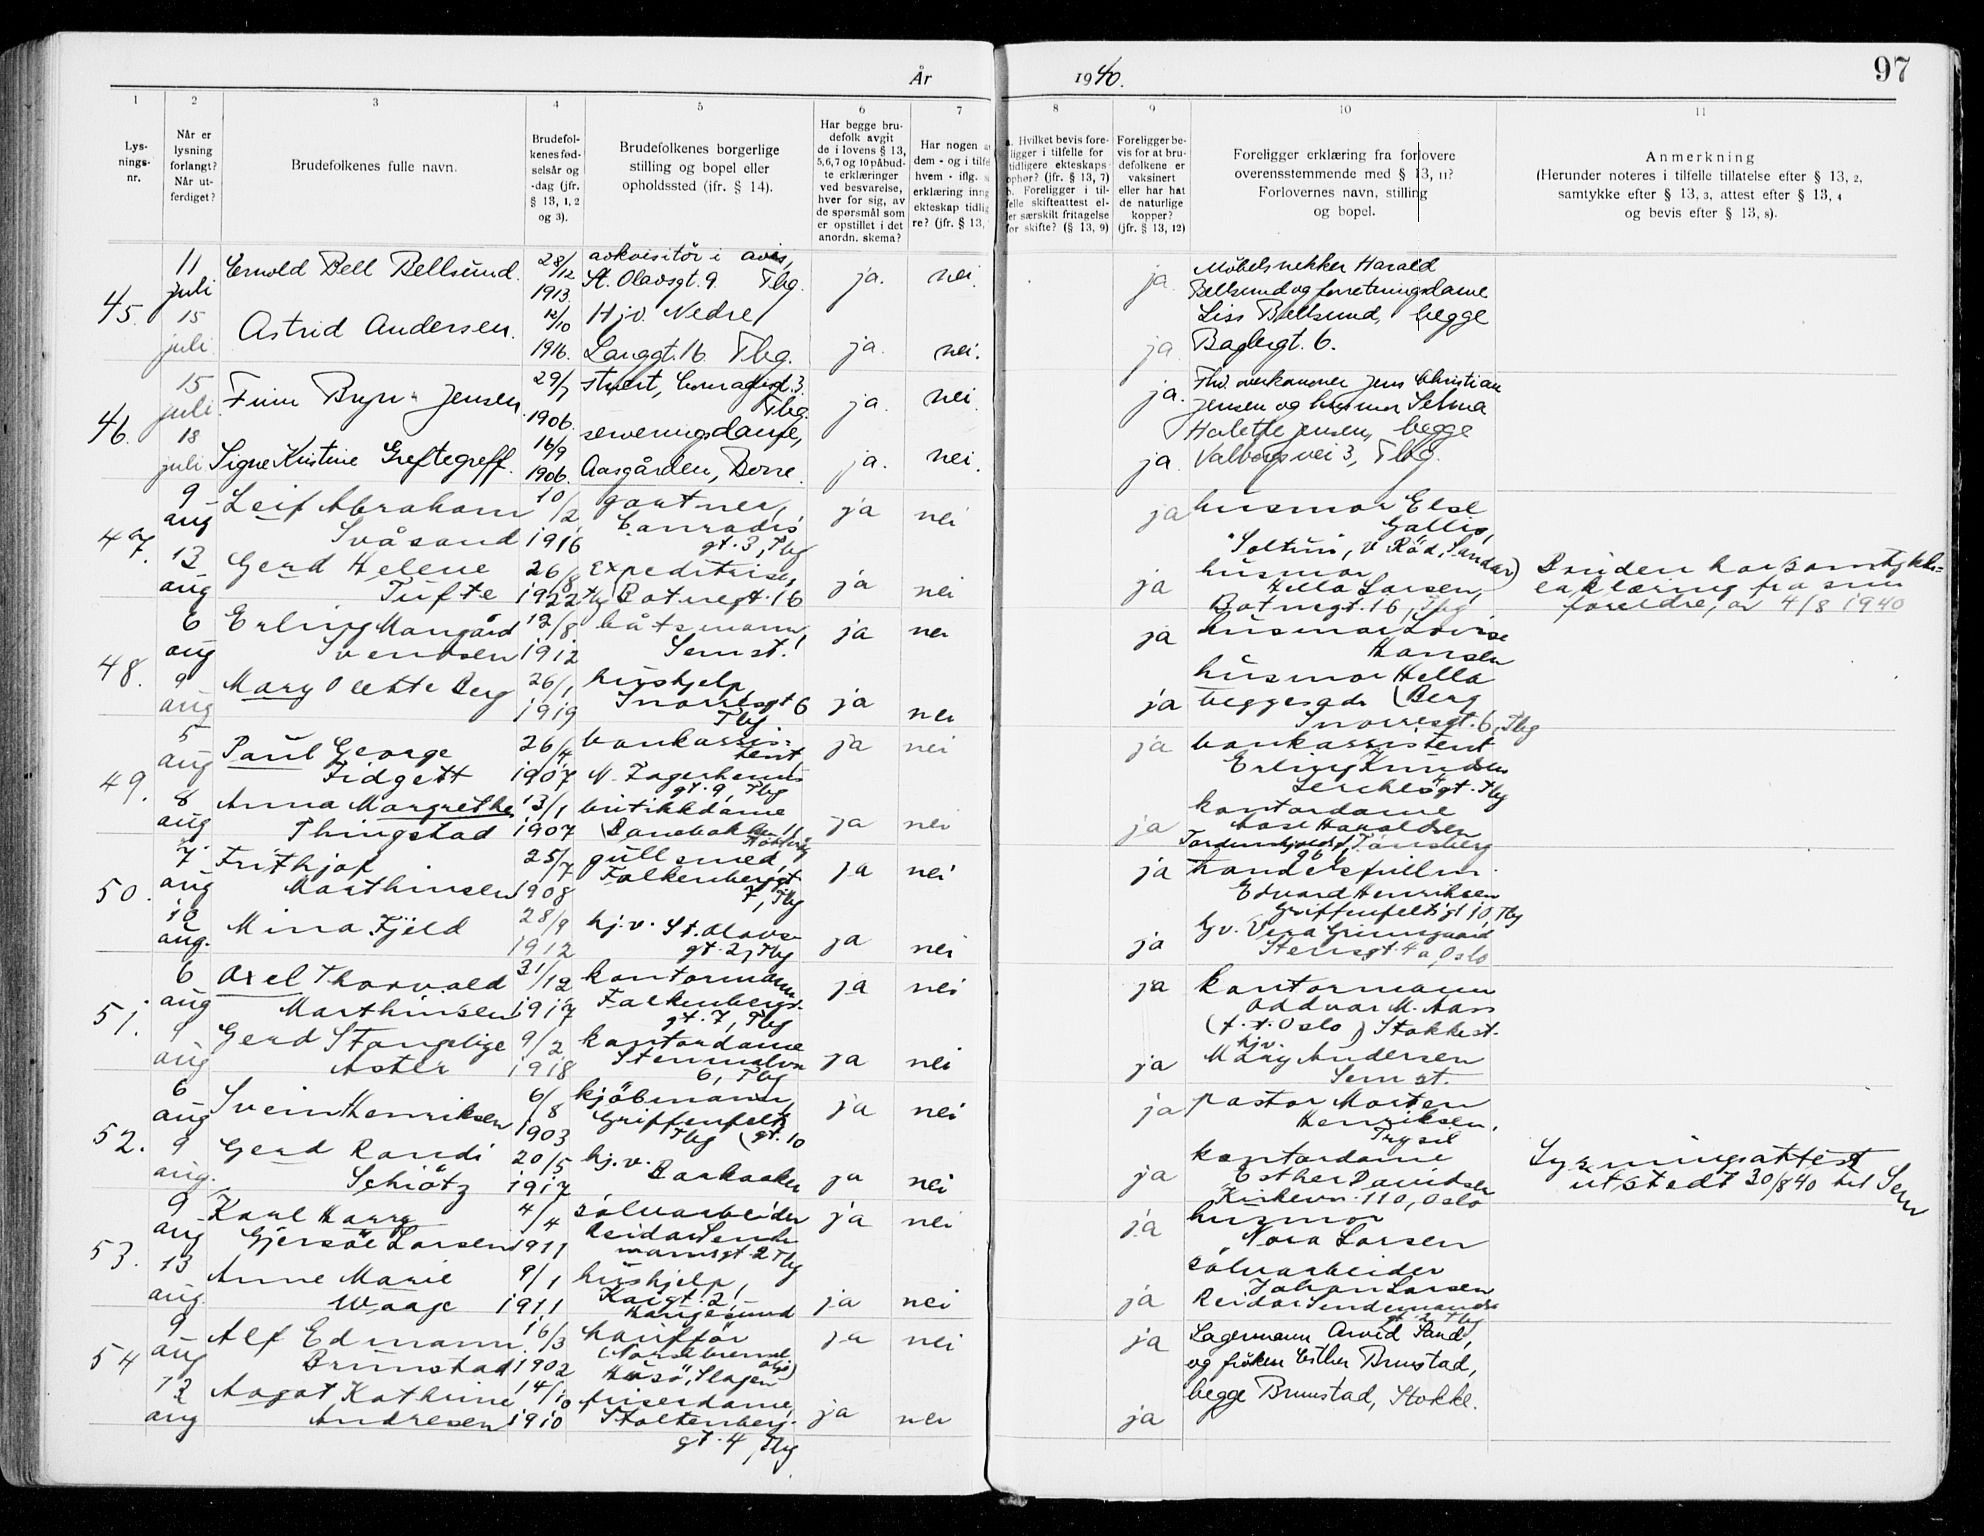 År 1940.
97
1 2 3 4 5 6 7 8 9 10 11
Lysningsnr.
Når er lysning forlangt? Når utferdiget?
Brudefolkenes fulle navn.
Brudefolkenes fødselsår og -dag (jfr. § 13, 1, 2 og 3).
Brudefolkenes borgerlige stilling og bopel eller opholdssted (jfr. § 14).
Har begge brudefolk avgit de i lovens § 13, 5, 6, 7 og 10 påbudte erklæringer ved besvarelse, hver for sig, av de spørsmål som er opstillet i det anordn. skema?
Har nogen a
dem - og i tilfel
hvem - iflg. s
erklæring inng
ekteskap tidlig
re? (jfr. § 13,
a. Hvilket bevis fore-
ligger i tilfelle for
tidligere ekteskaps
ophør? (jfr. § 13, 7)
b. Foreligger i til-
felle skifteattest el-
ler særskilt fritagelse
for skifte? (§ 13, 9)
Foreligger bevis for at brudefolkene er vaksinert eller har hat de naturlige kopper? (jfr. § 13, 12)
Foreligger erklæring fra forlovere overensstemmende med § 13, 11? Forlovernes navn, stilling og bopel.
Anmerkning
(Herunder noteres i tilfelle tillatelse efter § 13, 2, samtykke efter § 13, 3, attest efter § 13, 4 og bevis efter § 13, 8).
45.
11 juli Ernold Bell Bellsund. 28/12 1913. avkvisitør i avis, St. Olavsgt. 9. Tbg. ja. nei. ja Møbelsnekker Harald
Bellsund og forretningsdame
15 juli Astrid Andersen. 12/10 1916. Hjv. Nedre Langgt. 16 Tbg. ja. nei. ja Liss Bellsund, begge
Baglergt. 6.
46.
15 juli Finn Bryn-Jensen. 29/7 1906. stuert, Conradisgt. 3. Tbg. ja. nei. ja. Fhv. overkanoner Jens Christian
Jensen og husmor Selma
18 juli Signe Kristine Greftegreff. 16/9 1906. serveringsdame, Aasgården, Borre. ja. nei. ja. Jensen, begge
Valborgsvei 3, Tbg.
47.
9 aug Leif Abraham Svåsand 10/2 1916 gartner, Conradis gt. 3, Tbg ja nei ja husmor Else Gallis,
"Soltun", v Råd, Sandar
13 aug Gerd Helene Tufte 26/8 1922 Expeditrise, Botnegt. 16 Tbg ja nei ja husmor Hella Larsen,
Botnegt. 16, Tbg
Bruden har samtykke=
erklæring fra sine
foreldre, av 4/8 1940
48.
6 aug Erling Mangård Svendsen 12/8 1912 båtsmann, Sem st. ja nei ja husmor Lovise Hansen
9 aug Mary Olette Berg 26/1 1919 hushjelp Snorresgt 6 Tbg ja nei ja husmor Hella Berg
Snorresgt. 6, Tbg
49.
5 aug Paul George Fidgett 26/4 1907 bankassis=tent, gt. 9, Tbg ja nei ja bankassistent
Erling Knudsen
Lerchesgt. 4 Tbg
8 aug Anna Margrethe Thingstad 13/1 1907 butikkdame ja nei ja kontordame
Aase Haraldsen
Tønsberg
50.
7 aug Frithjof Marthinsen 25/7 1908 gullsmed, Falkenbergsgt 7, Tbg ja nei ja handelsfullm.
Edvard Henriksen
Griffenfeltsgt 10, Tbg
10 aug. Mina Fjeld 28/9 1912 hj.v. St. Olavs-gt. 2, Tbg ja nei ja hjv. Vera Grimsgaard
Stensgt. 4a, Oslo
51.
6 aug Axel Thorvald Marthinsen 31/12 1917 kontormann Falkenbergs-gt. 7, Tbg ja nei ja kontormann
Oddvar M. Aass
(f. t. Oslo) Stokke st.
9 aug Gerd Stangebye Aster 9/2 1918 kontordame 6, Tbg ja nei ja hjv. Mary Andersen
Sem st.
52.
6 aug Svein Henriksen 6/8 1903 kjöbmann, Griffenfelts gt. 10 Tbg ja nei ja pastor Morten
Henriksen,
Trysil
9 aug. Gerd Randi Schiötz 20/5 1917 hj.v. Barkaaker ja nei ja kontordame
Esther Davidsen
Kirkevn. 110, Oslo
Lysningsattest
utstedt 30/8 40 til Sem
53.
9 aug Karl Harry Gjersöe Larsen 4/4 1911 sølvarbeider Reidar Sendemannsgt. 2 Tbg ja nei ja husmor
Nora Larsen
13 aug. Anne Marie Waage 9/1 1911 hushjelp, Kaigt. 2, Haugesund ja nei ja sølvarbeider
Johan Larsen
Reidar Sendemands
gt. 2 Tbg
54
9 aug Alf Edmann Brunstad 16/3 1902 hauffør Husö, Slagen ja nei ja Lagermann Arvid Sand,
og frøken Esther Brunstad,
13 aug Aagot Kathrine Andresen 14/10 1910 friserdame, Stoltenberg-gt. 4, Tbg ja nei ja begge Brunstad, Stokke.